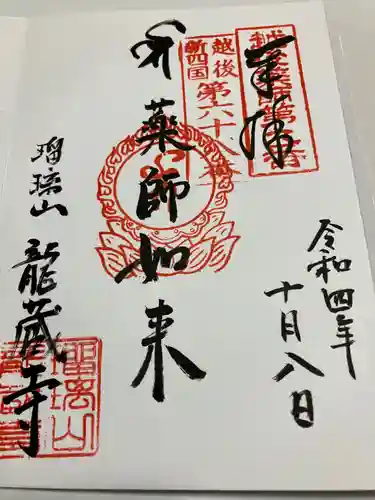 奉拝
越後
新四国
第六十八番
薬師如来
令和四年
十月八日
瑠璃山
龍蔵寺
瑠璃山